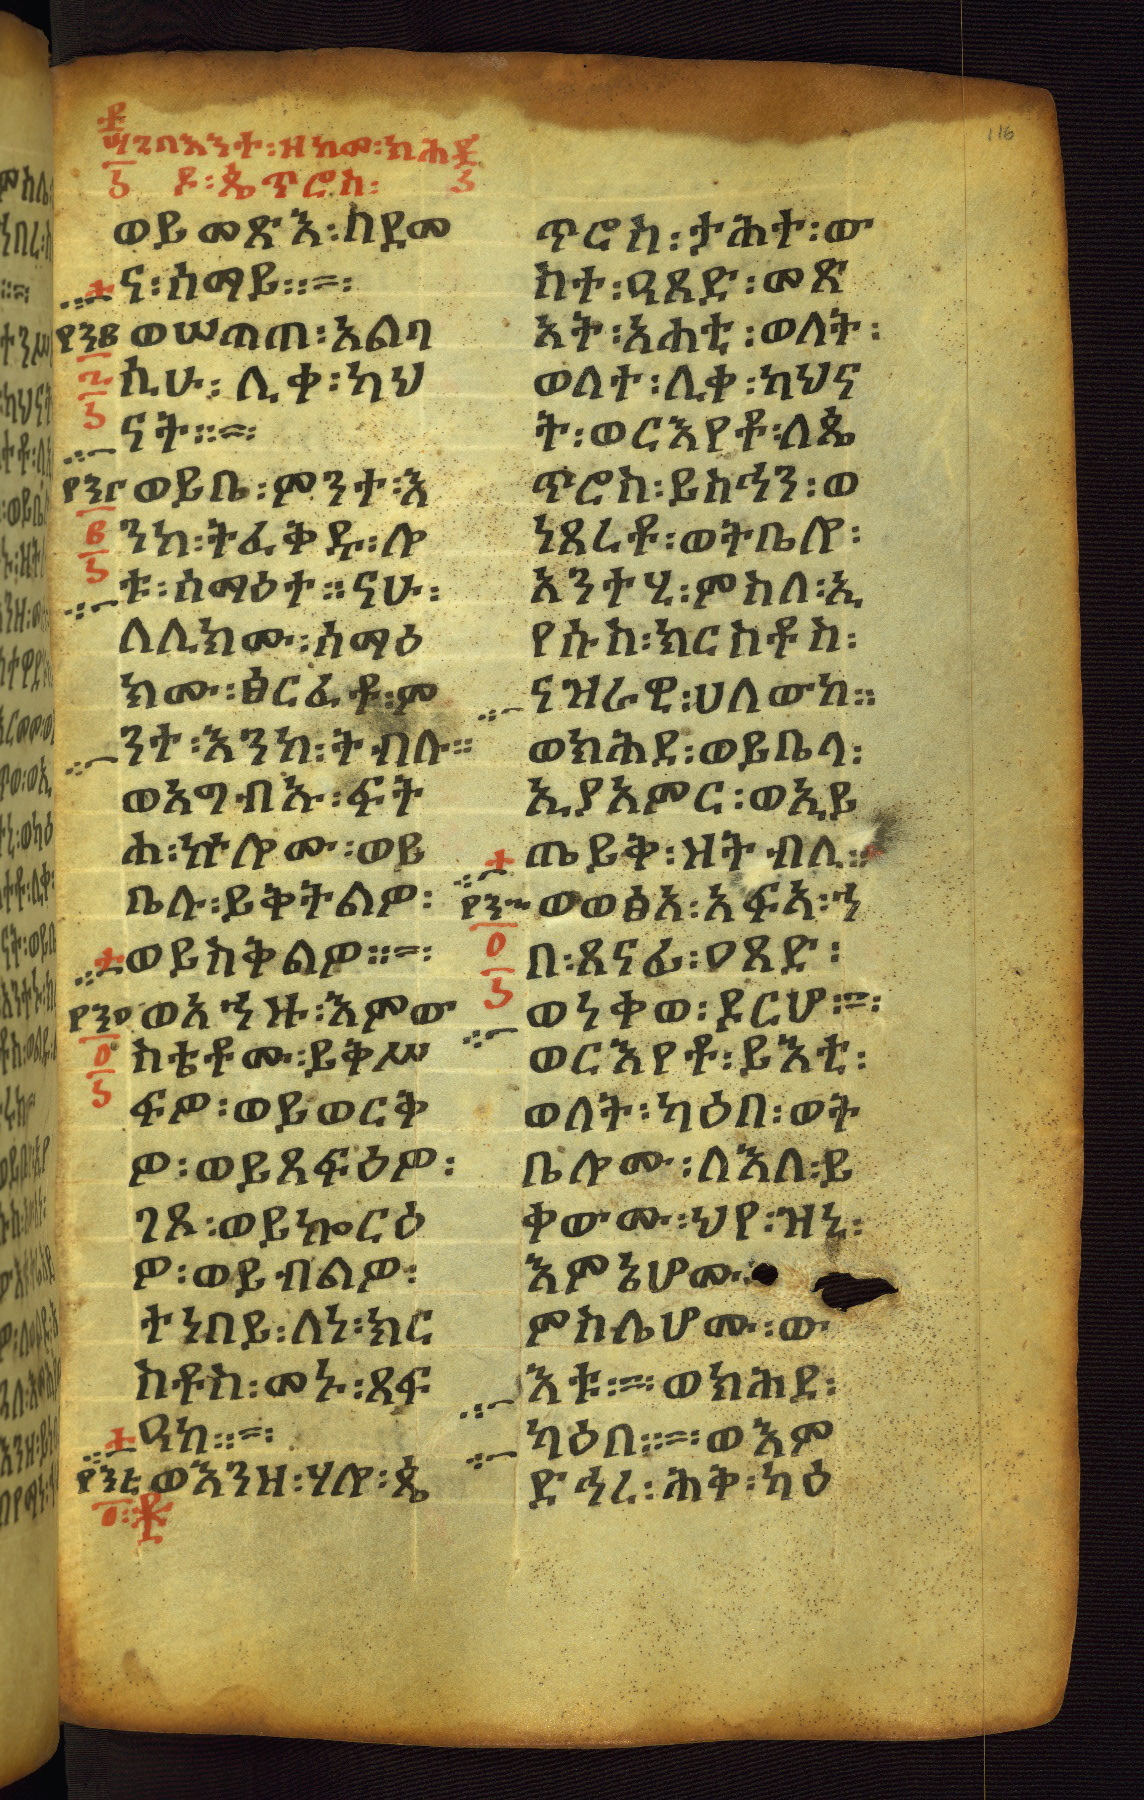 በእንተ፡ዘከመ፡ክሕ
ዶ፡ጴጥሮስ፡
ወይመጽእ፡በደመ
ና፡ሰማይ።=፡
ወሠጠጠ፡አልባ
ሲሁ፡ሊቀ፡ካህ
ናት።=፡
ወይቤ፡ምንተ፡እ
ንከ፡ትፈቅዱ፡ሎ
ቱ፡ሰማዕተ።ናሁ፡
ለሊክሙ፡ሰማዕ
ክሙ፡ፅርፈቶ፡ም
ንተ፡እንከ፡ትብሉ።
ወአግብኡ፡ፍት
ሐ፡ኵሎሙ፡ወይ
ቤሉ፡ይቅትልዎ፡
ወይስቅልዎ።=፡
ወአኀዙ፡እምው
ስቴቶሙ፡ይቅሥ
ፍዎ፡ወይወርቅ
ዎ፡ወይጸፍዕዎ፡
ገጾ፡ወይኰርዕ
ዎ፡ወይብልዎ፡
ተነበይ፡ለነ፡ክር
ስቶስ፡መኑ፡ጸፍ
ዓከ።=፡
ወእንዘ፡ሃሎ፡ጴ
ጥሮስ፡ታሕተ፡ው
ስተ፡ዓጸድ፡መጽ
አት፡አሐቲ፡ወለት፡
ወለተ፡ሊቀ፡ካህና
ት፡ወርእየቶ፡ለጴ
ጥሮስ፡ይስኅን፡ወ
ነጸረቶ፡ወትቤሎ፡
አንተሂ፡ምስለ፡ኢ
የሱስ፡ክርስቶስ፡
ናዝራዊ፡ሀለውከ።
ወክሕደ፡ወይቤላ፡
ኢያአምር፡ወኢይ
ጤይቅ፡ዘትብሊ።
ወወፅአ፡አፍአ፡ኀ
በ፡ጸናፊ፡ዐጸድ፡
ወነቀወ፡ዶርሆ።=፡
ወርእየቶ፡ይእቲ፡
ወለት፡ካዕበ፡ወት
ቤሎሙ፡ለእለ፡ይ
ቀውሙ፡ህየ፡ዝኒ፡
እምኔሆሙ፡
ምስሌሆሙ፡ው
እቱ።=፡ወክሕደ፡
ካዕበ።=፡ወእም
ድኅረ፡ሕቅ፡ካዕ
116